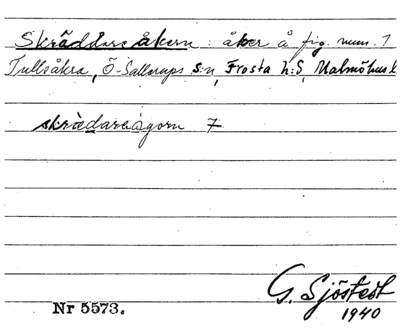 Skräddareåkern : åker å fig. num. 7
Tullsåkra, Ö-Sallerups s:n, Frosta h:d, Malmöhus l.
skrädaragorn 7
G. Sjöstedt
1940
Nr 5573.